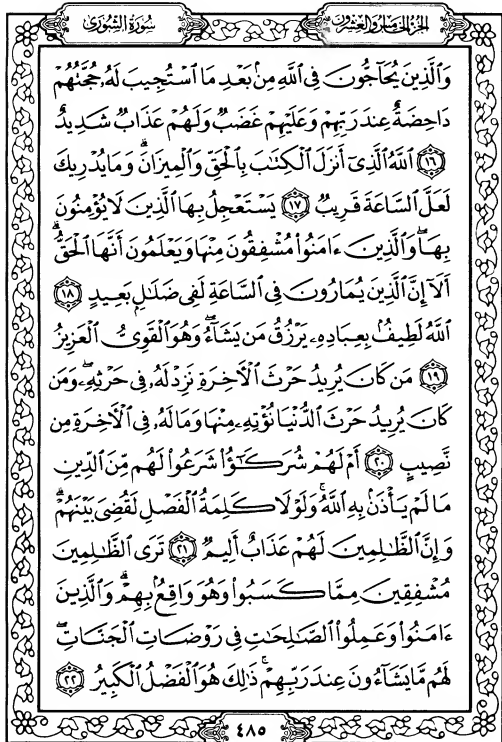 الجزء الخامس والعشرون
سورة الشورى
وَالَّذِينَ يُحَاجُّونَ فِى اللَّهِ مِنۢ بَعْدِ مَا ٱسْتُجِيبَ لَهُۥ حُجَّتُهُمْ
دَاحِضَةٌ عِندَ رَبِّهِمْ وَعَلَيْهِمْ غَضَبٌ وَلَهُمْ عَذَابٌ شَدِيدٌ
١٦ ٱللَّهُ ٱلَّذِىٓ أَنزَلَ ٱلْكِتَٰبَ بِٱلْحَقِّ وَٱلْمِيزَانَۗ وَمَا يُدْرِيكَ
لَعَلَّ ٱلسَّاعَةَ قَرِيبٌ ١٧ يَسْتَعْجِلُ بِهَا ٱلَّذِينَ لَا يُؤْمِنُونَ
بِهَاۖ وَٱلَّذِينَ ءَامَنُوا۟ مُشْفِقُونَ مِنْهَا وَيَعْلَمُونَ أَنَّهَا ٱلْحَقُّۗ
أَلَآ إِنَّ ٱلَّذِينَ يُمَارُونَ فِى ٱلسَّاعَةِ لَفِى ضَلَٰلٍۭ بَعِيدٍ ١٨
ٱللَّهُ لَطِيفٌۢ بِعِبَادِهِۦ يَرْزُقُ مَن يَشَآءُۖ وَهُوَ ٱلْقَوِىُّ ٱلْعَزِيزُ
١٩ مَن كَانَ يُرِيدُ حَرْثَ ٱلْءَاخِرَةِ نَزِدْ لَهُۥ فِى حَرْثِهِۦۖ وَمَن
كَانَ يُرِيدُ حَرْثَ ٱلدُّنْيَا نُؤْتِهِۦ مِنْهَا وَمَا لَهُۥ فِى ٱلْءَاخِرَةِ مِن
نَّصِيبٍ ٢٠ أَمْ لَهُمْ شُرَكَٰٓؤُا۟ شَرَعُوا۟ لَهُم مِّنَ ٱلدِّينِ
مَا لَمْ يَأْذَنۢ بِهِ ٱللَّهُۚ وَلَوْلَا كَلِمَةُ ٱلْفَصْلِ لَقُضِىَ بَيْنَهُمْۗ
وَإِنَّ ٱلظَّٰلِمِينَ لَهُمْ عَذَابٌ أَلِيمٌ ٢١ تَرَى ٱلظَّٰلِمِينَ
مُشْفِقِينَ مِمَّا كَسَبُوا۟ وَهُوَ وَاقِعٌۢ بِهِمْۗ وَٱلَّذِينَ
ءَامَنُوا۟ وَعَمِلُوا۟ ٱلصَّٰلِحَٰتِ فِى رَوْضَاتِ ٱلْجَنَّاتِۖ
لَهُم مَّا يَشَآءُونَ عِندَ رَبِّهِمْۚ ذَٰلِكَ هُوَ ٱلْفَضْلُ ٱلْكَبِيرُ ٢٢
٤٨٥